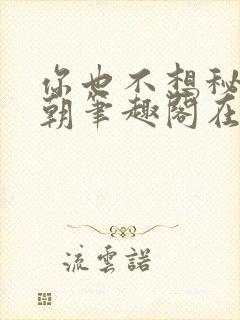 你也不想秘
朝笔趣阁在
流雲諾